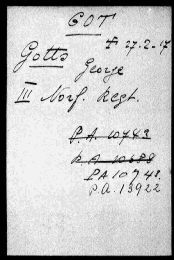 GOT
† 27.2.17
Gotts
George
III Norf. Regt.
P.A. 10743
R.A. 10688
P.A 10742.
P.A. 13922